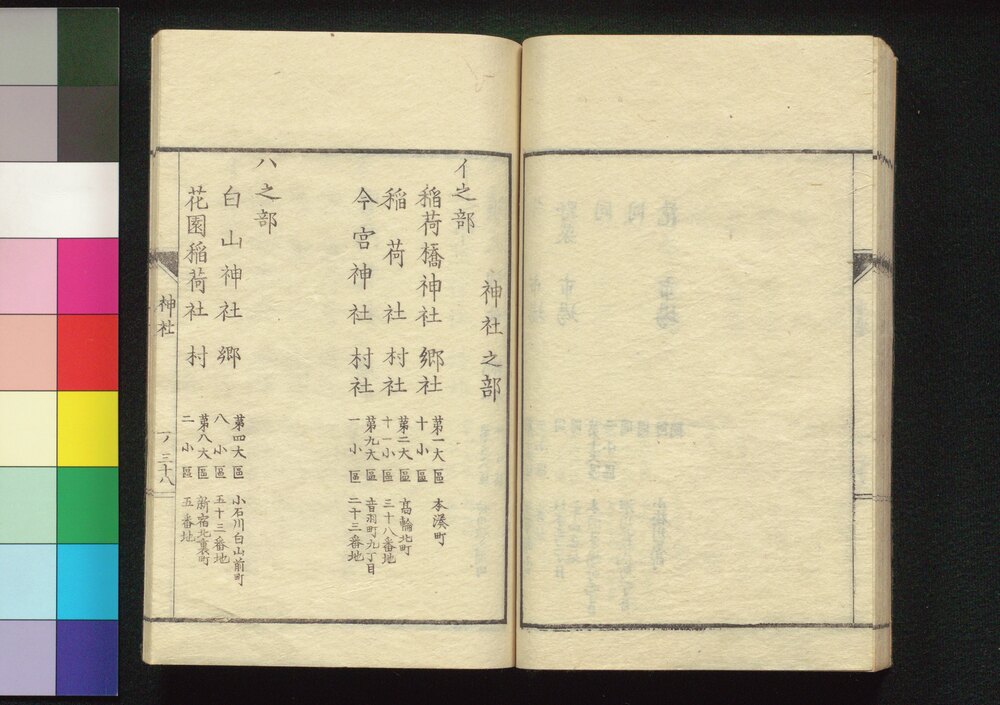 神社之部
イ之部
稲荷橋神社 郷社 第一大區十小區 本湊町
稲荷社 村社 第二大區十一小區 高輪北町三十八番地
今宮神社 村社 第九大區一小區 音羽町九丁目二十三番地
ハ之部
白山神社 郷 第四大區八小區 小石川白山前町五十三番地
花園稲荷社 村 第八大區二小區 新宿北裏町五番地
神社
一ノ三十八